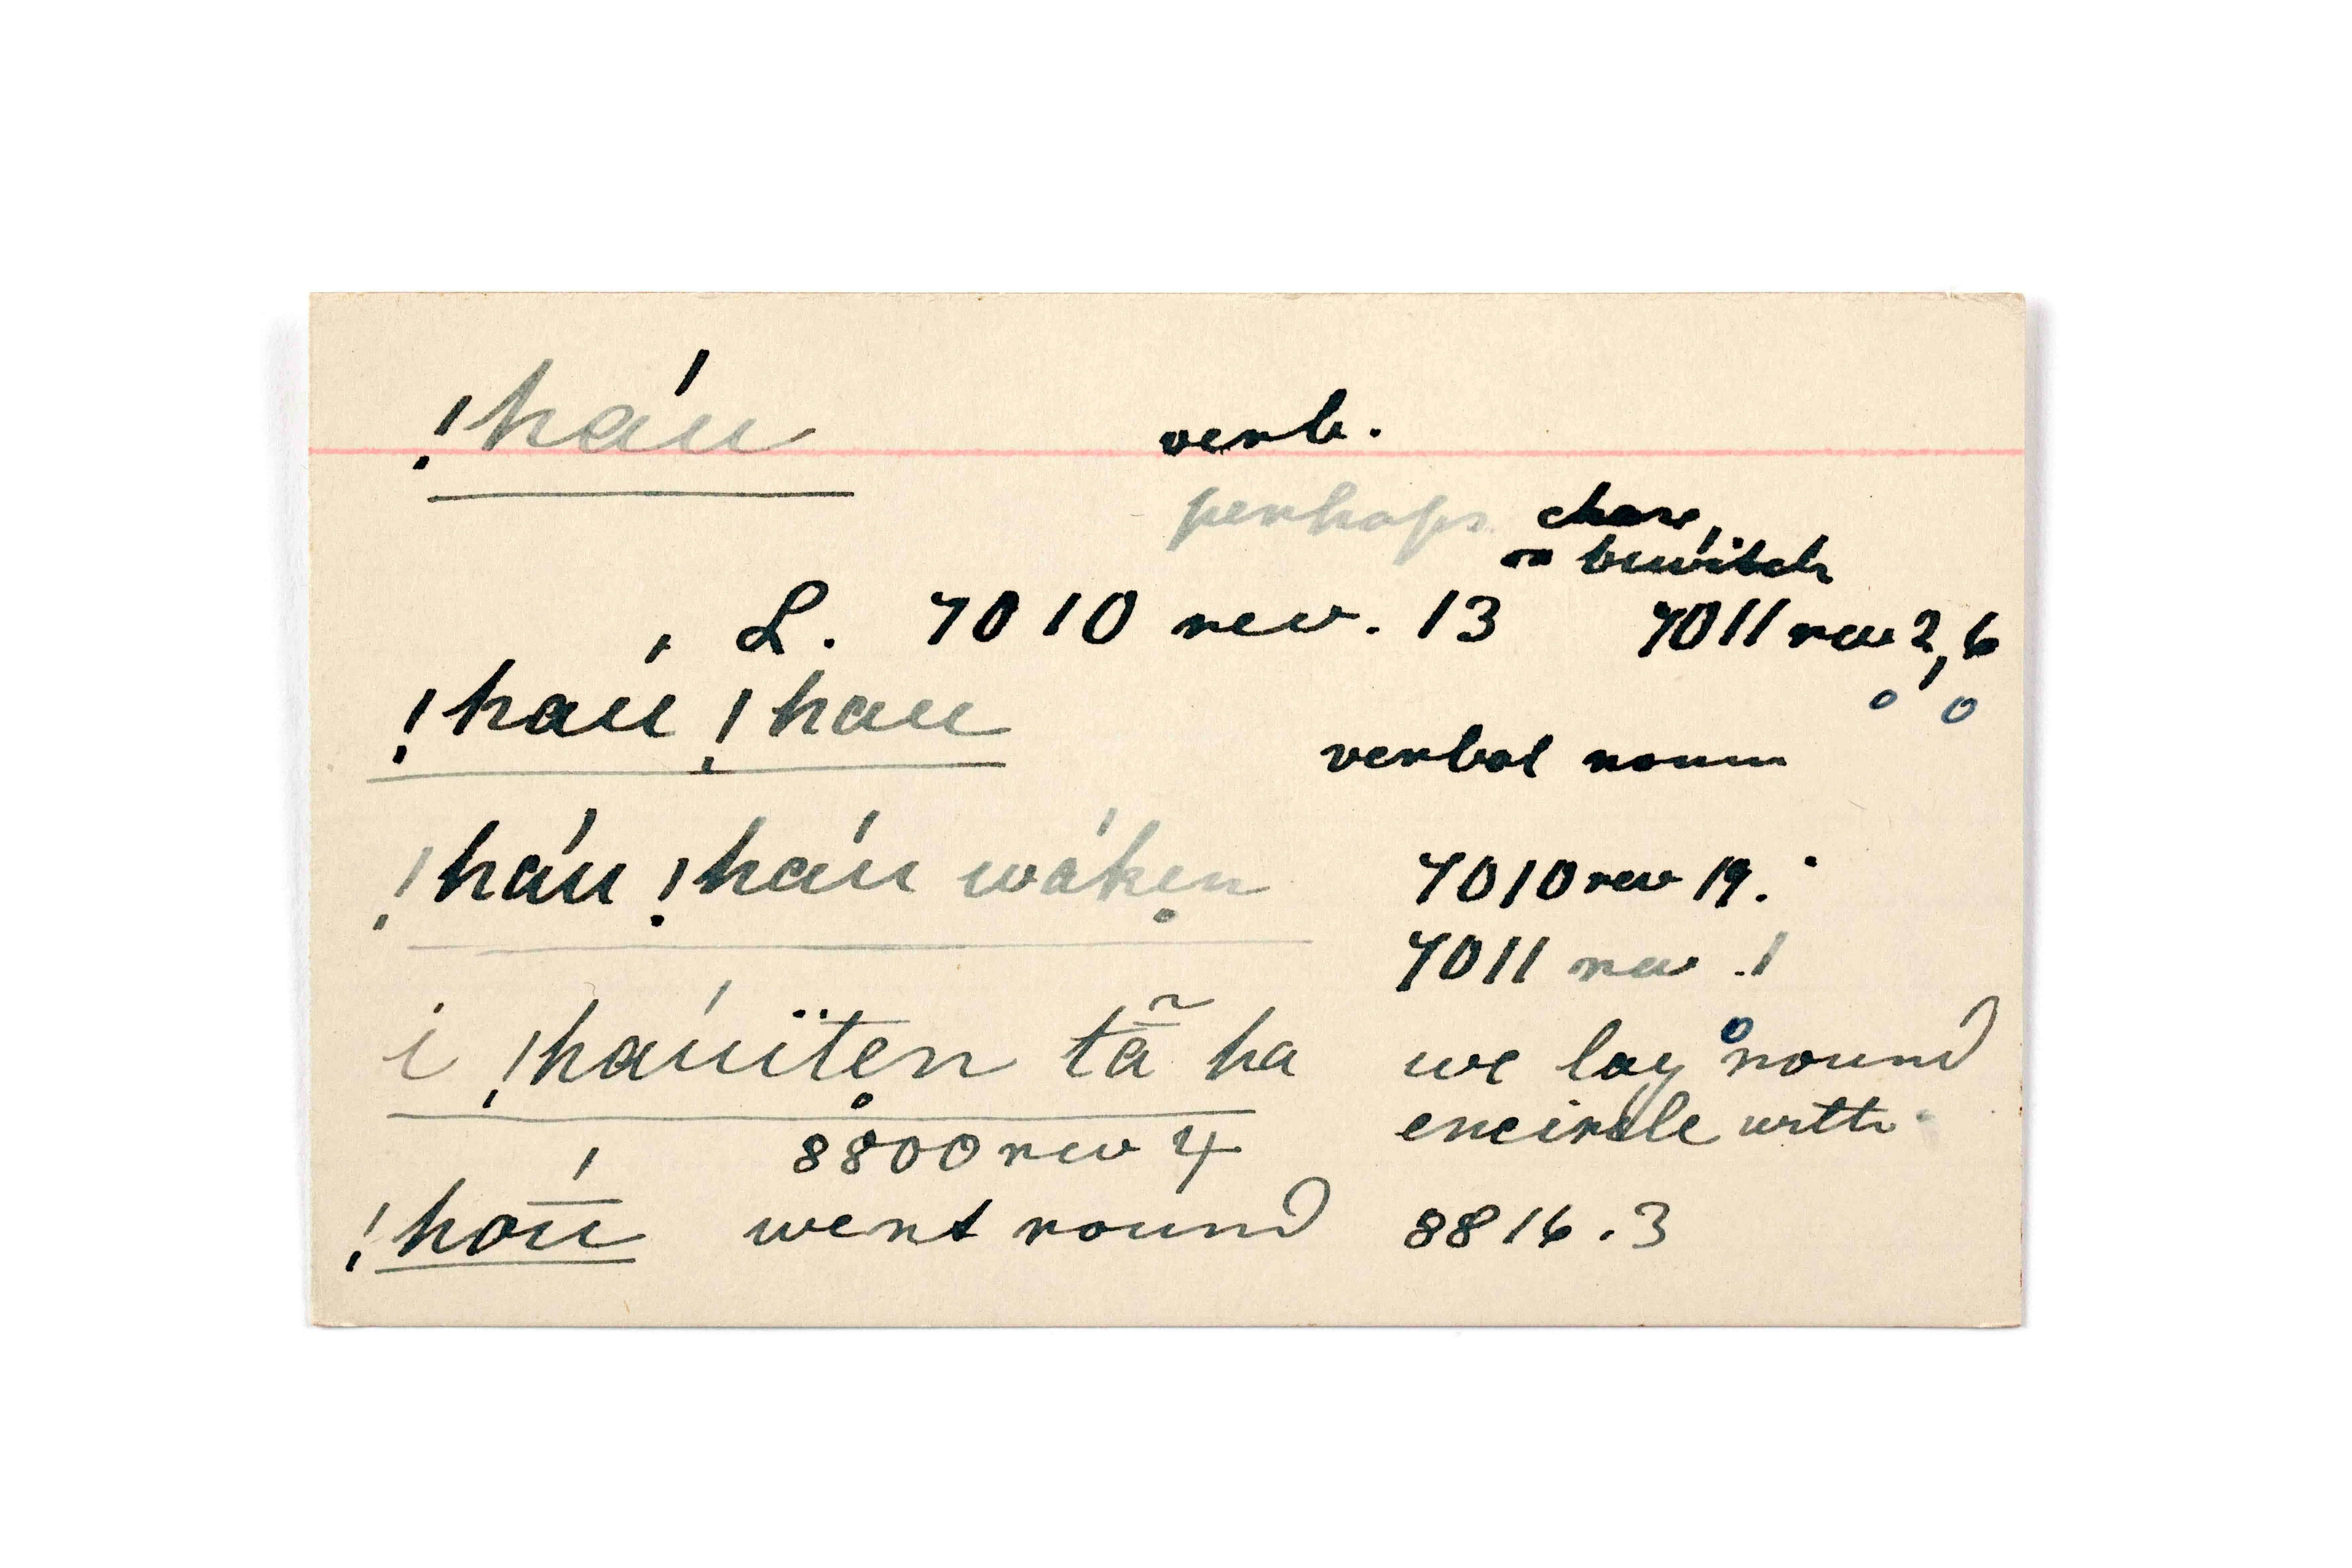 !háu verb.
perhaps chase,
or bewitch
L. 7010 rev. 13 7011 rev 2, 6
!háu !hau verbal noun
!háu !háu wáken 7010 rev 19.
7011 rev. 1
i !háuïten tã ha we lay round
encircle with
8800 rev 4
!hāú went round 8816.3